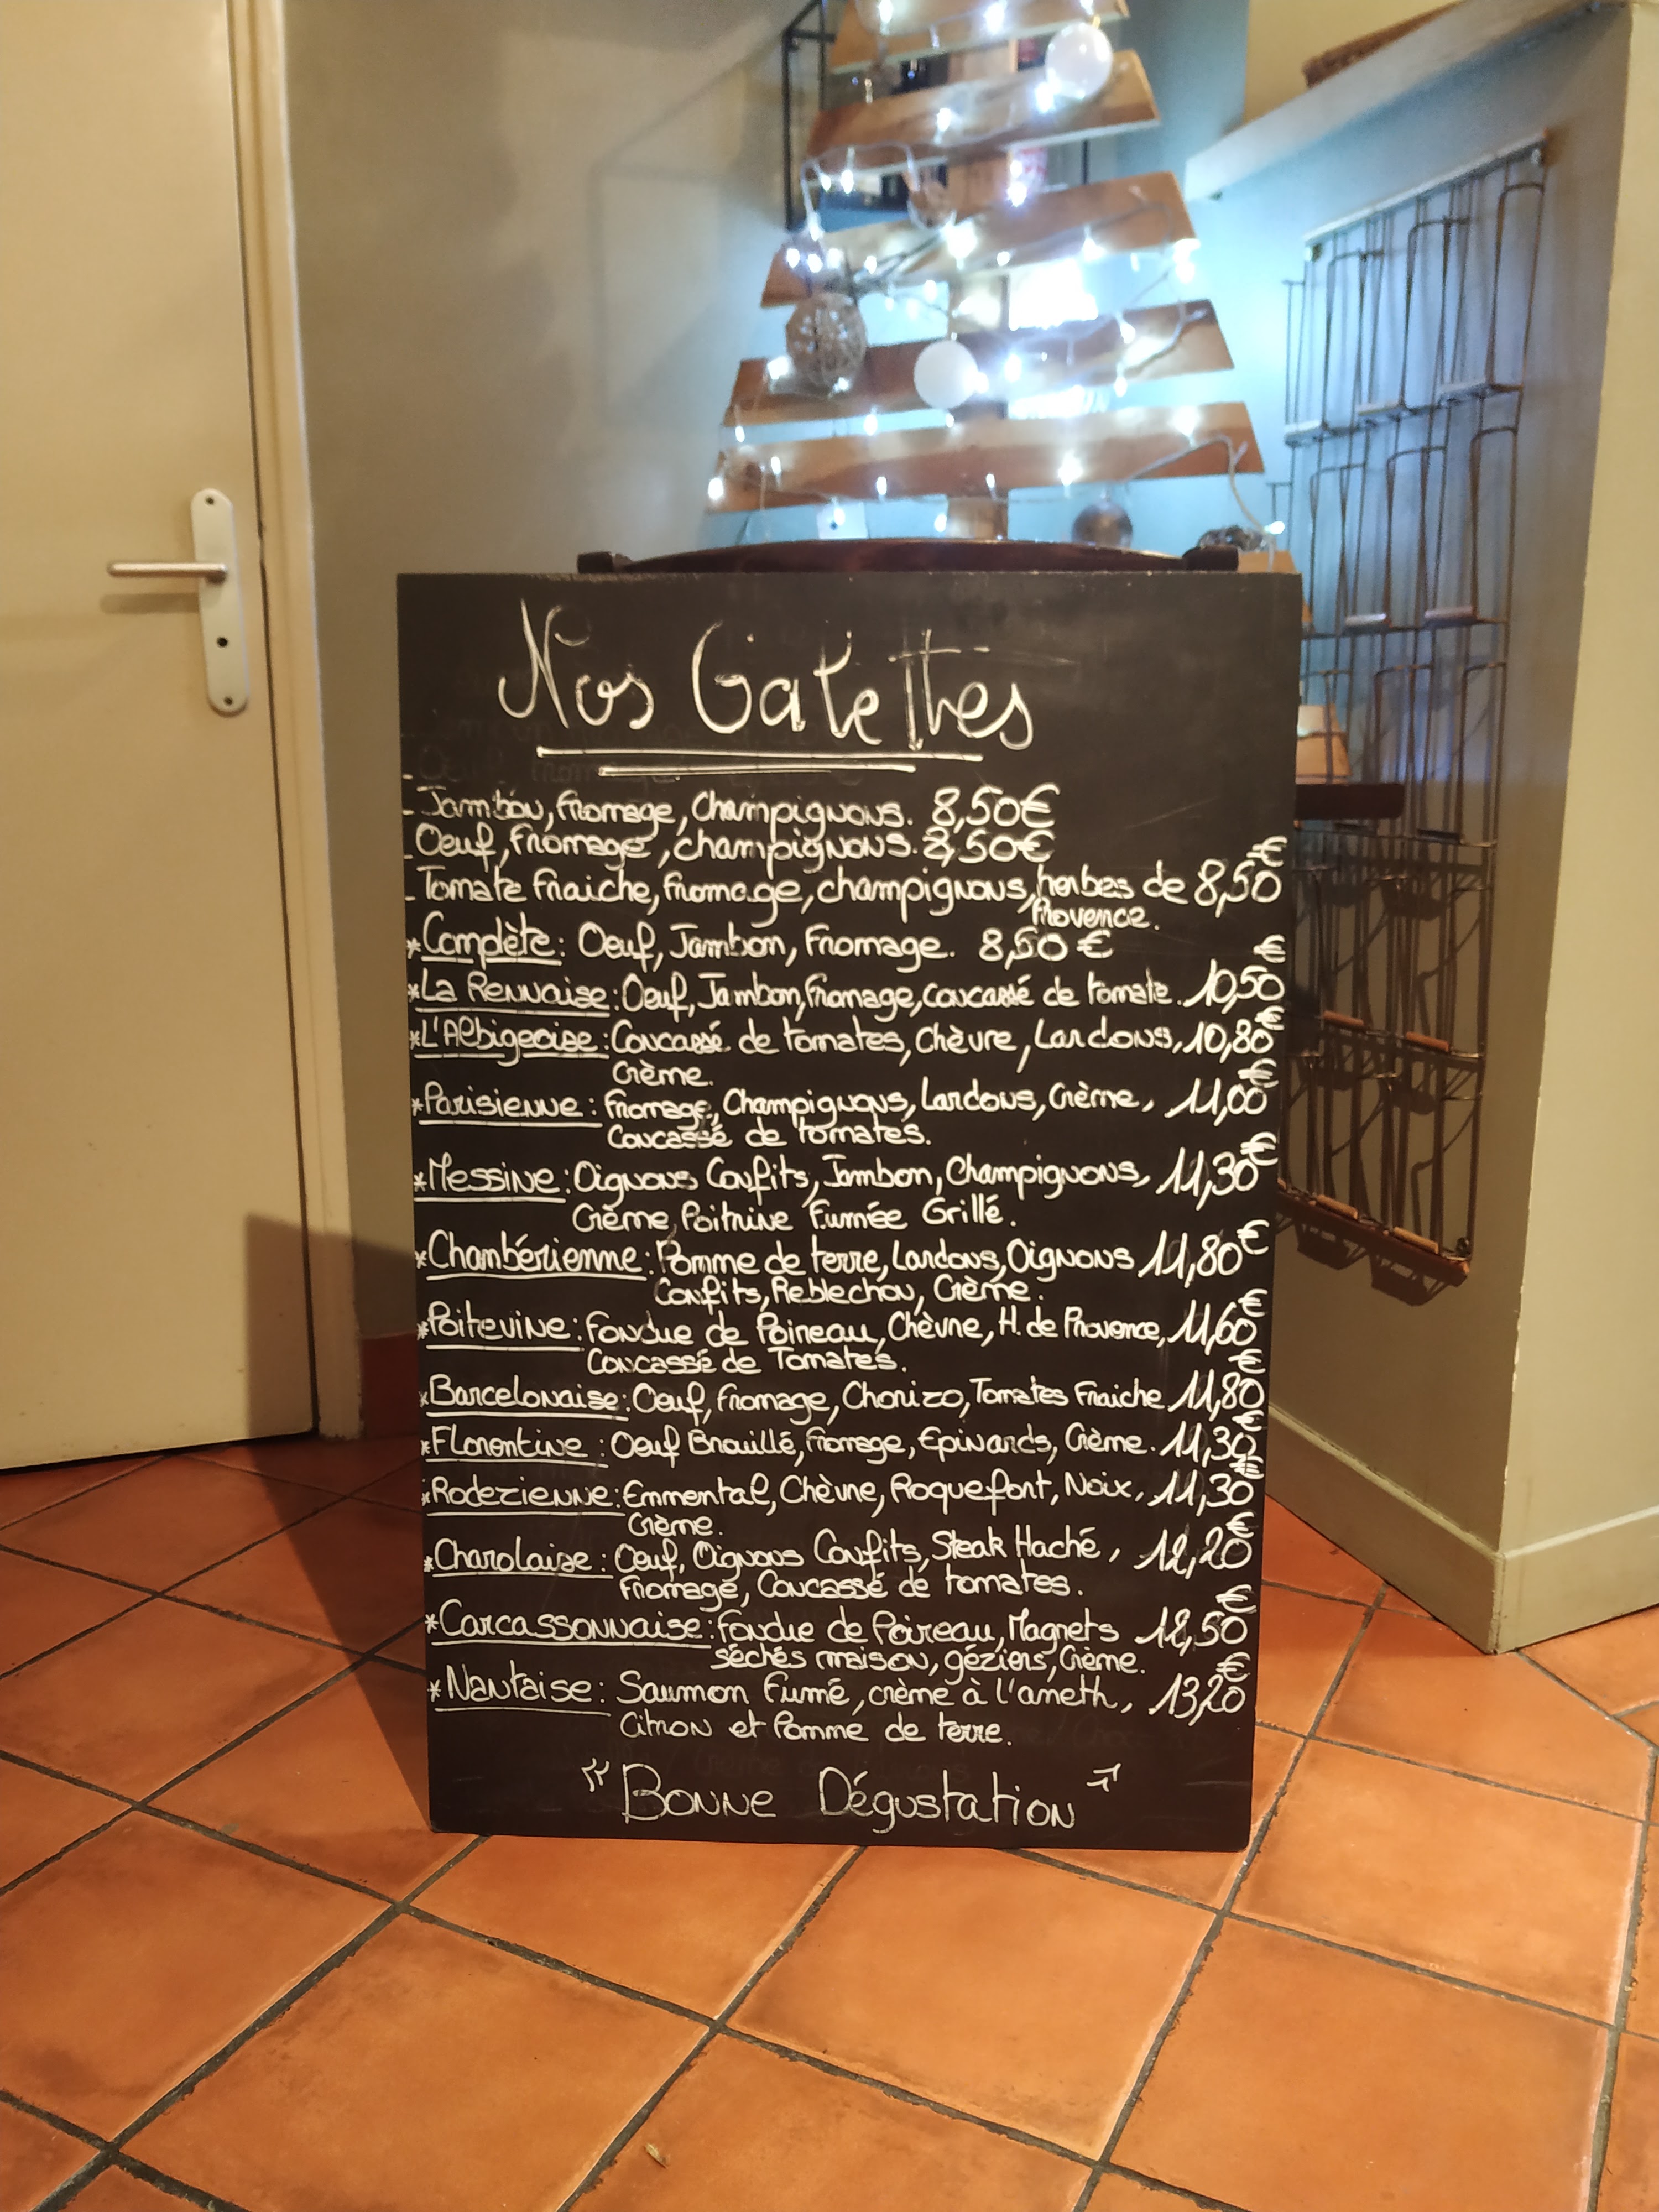 Nos Galettes
- Jambon, fromage, Champignons. 8,50€
- Oeuf, fromage, champignons. 8,50€
- Tomate fraiche, fromage, champignons, herbes de 8,50€
Provence.
*Complète: Oeuf, Jambon, Fromage. 8,50€
*La Rennaise: Oeuf, Jambon, fromage, Concassé de tomate. 10,50€
*L'Albigeoise: Concassé de tomates, Chèvre, Lardons, 10,80€
Crème.
*Parisienne: fromage, Champignons, Lardons, Crème, 11,00€
Concassé de tomates.
*Messine: Oignons Confits, Jambon, Champignons, 11,30€
Crème, Poitrine Fumée Grillé.
*Chambérienne: Pomme de terre, Lardons, Oignons 11,80€
Confits, Reblechon, Crème.
*Poitevine: Fondue de Poireau, Chèvre, H. de Provence, 11,60€
Concassé de Tomates.
*Barcelonaise: Oeuf, fromage, Chorizo, Tomates Fraiche 11,80€
*Florentine: Oeuf Brouillé, fromage, Epinards, Crème. 11,30€
*Rodezienne: Emmental, Chèvre, Roquefort, Noix, 11,30€
Crème.
*Charolaise: Oeuf, Oignons Confits, Steak Haché, 12,20€
fromage, Concassé de tomates.
*Carcassonnaise: fondue de Poireau, Magrets 12,50€
séchés maison, géziers, Crème.
*Nantaise: Saumon Fumé, crème à l'aneth, 13,20€
Citron et Pomme de terre.
"Bonne Dégustation"